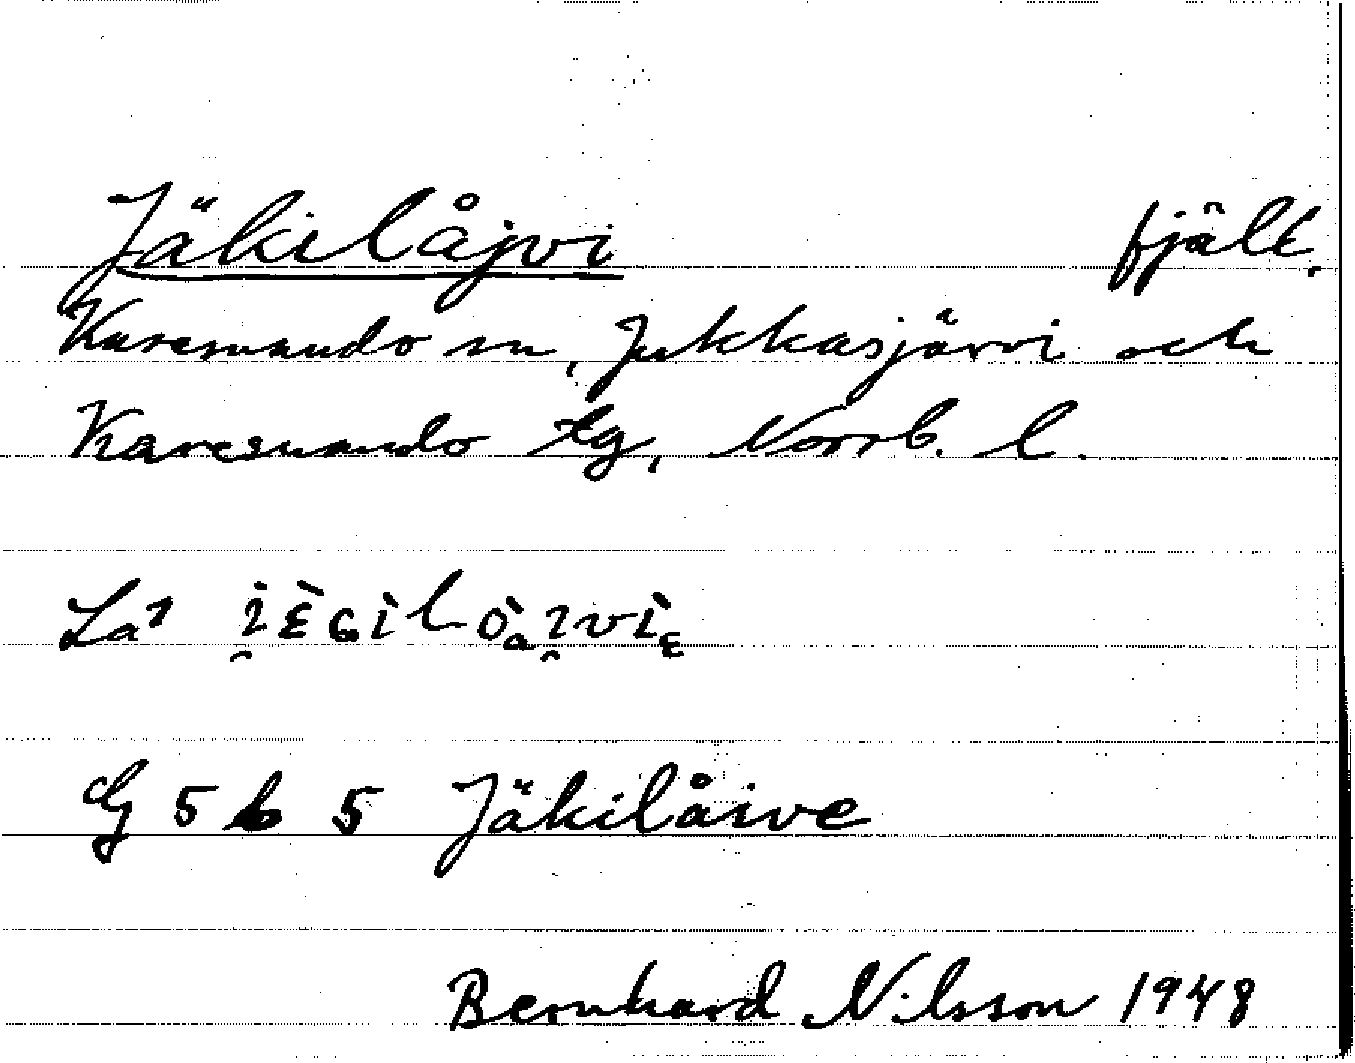 Jäkilåjvi fjäll.
Karesuando sn, Jukkasjärvi och
Karesuando tg, Norrb. l.
G 5 b 5 Jäkilåive
Bernhard Nilsson 1948